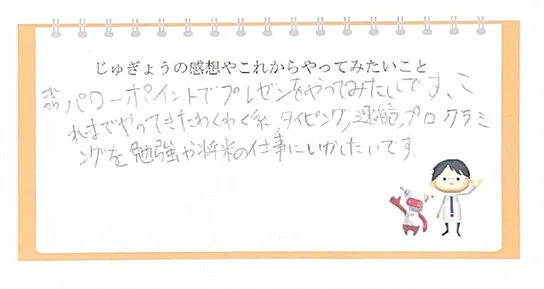 じゅぎょうの感想やこれからやってみたいこと
パワーポイントでプレゼンをやってみたいです。こ
れまでやってきたわくわく系 タイピング、速読、プログラミ
ングを勉強や将来の仕事にいかしたいです。